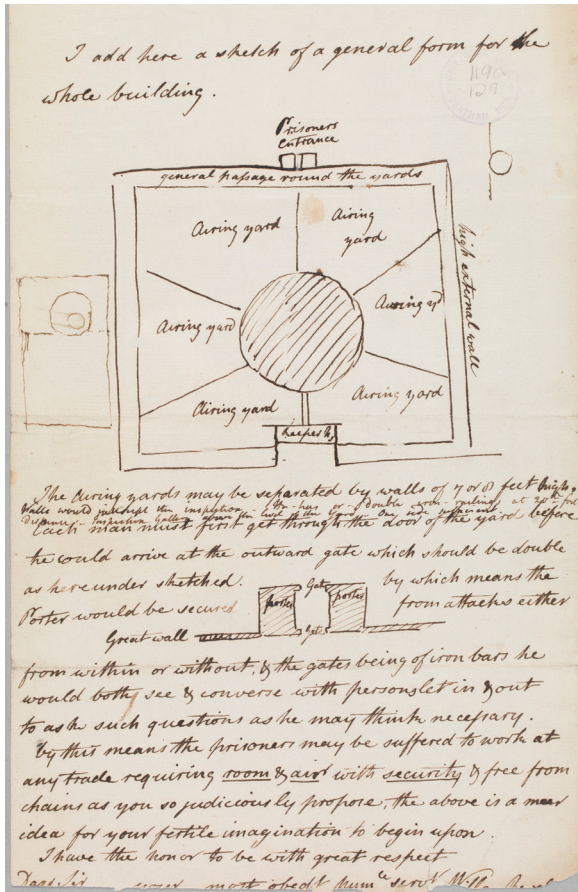 I add here a sketch of a general form for the
whole building.
1190
129
Prisoners
entrance
general passage round the yards
Airing yard
Airing
yard
Airing yd
high external wall
Airing yard
Airing yard
Airing yard
keepers h.
The Airing yards may be separated by walls of 7 or 8 feet high.
walls would intercept the inspection
Each man must first get through the door of the yard before
he could arrive at the outward gate which should be double
as hereunder sketched.
by which means the
Gate
porter
porter
Porter would be secured
from attacks either
Great wall
Gate
from within or without, & the gates being of iron bars he
would both see & converse with persons let in & out
to ask such questions as he may think necessary.
by this means the prisoners may be suffered to work at
any trade requiring room & air with security & free from
chains as you so judiciously propose, the above is a meer
idea for your fertile imagination to begin upon.
I have the honor to be with great respect
Dear Sir your most obedt humle servt Will